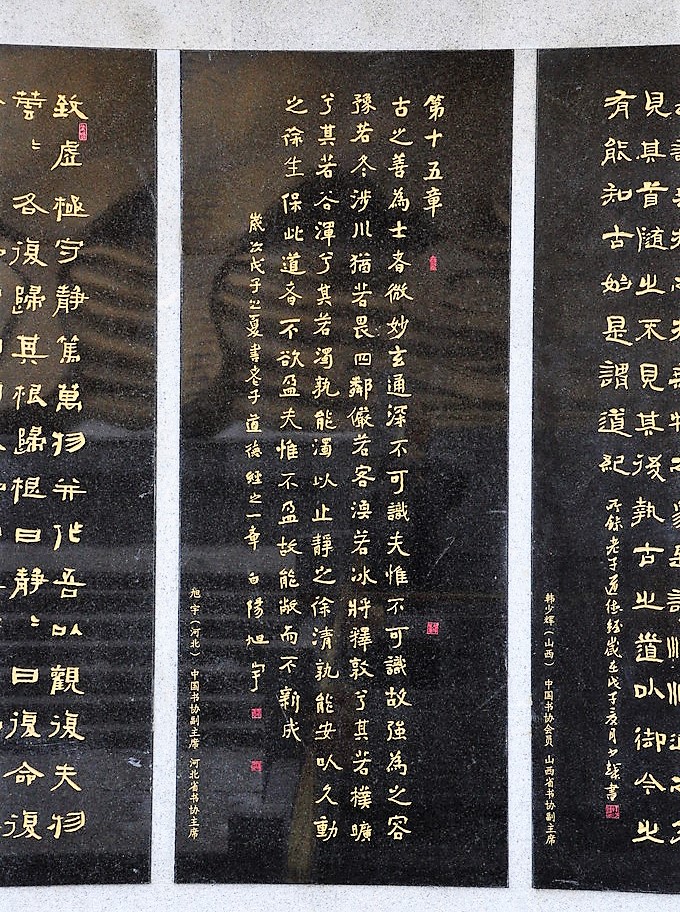 見其首隨之不見其後執古之道以御今之
有能知古始是謂道紀
老子道德經歲在戊子夏月少輝書
韩少辉（山西） 中国书协会员 山西省书协副主席
第十五章
古之善為士者微妙玄通深不可識夫惟不可識故強為之容
豫若冬涉川猶若畏四鄰儼若客渙若冰將釋敦兮其若樸曠
兮其若谷渾兮其若濁孰能濁以止靜之徐清孰能安以久動
之徐生保此道者不欲盈夫惟不盈故能敝而不新成
歲次戊子之夏書老子道德經之一章 白陽旭宇
旭 宇（河北） 中国书协副主席 河北省书协主席
致虛極守靜篤萬物并作吾以觀復夫物
芸〻各復歸其根歸根曰靜〻曰復命復